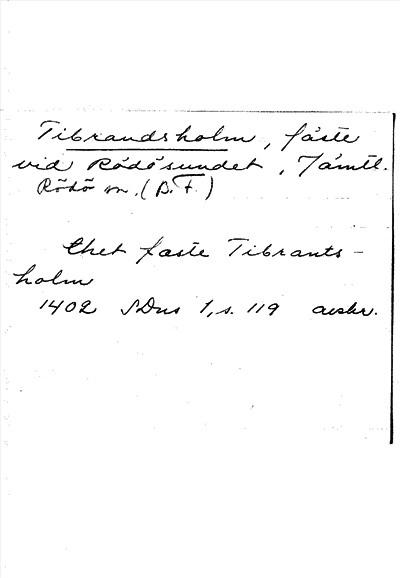 Tibrandsholm, fäste
vid Rödösundet, Jämtl.
Rödö sn. (B.F.)
thet faste Tibrants-
holm
1402 SDns 1, s. 119 avskr.